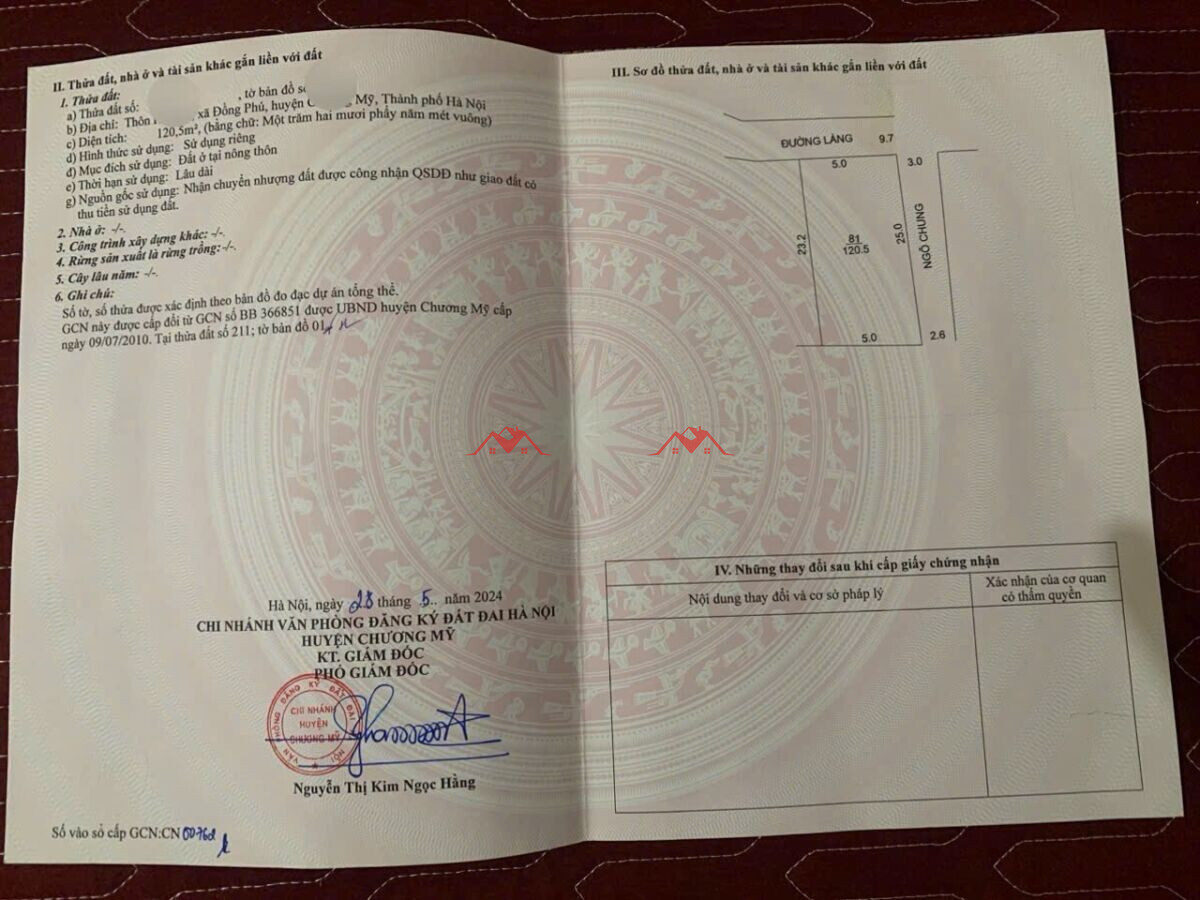 II. Thửa đất, nhà ở và tài sản khác gắn liền với đất
1. Thửa đất:
a) Thửa đất số: , tờ bản đồ số
b) Địa chỉ: Thôn , xã Đồng Phú, huyện Mỹ, Thành phố Hà Nội
c) Diện tích: 120,5m², (bằng chữ: Một trăm hai mươi phẩy năm mét vuông)
d) Hình thức sử dụng: Sử dụng riêng
đ) Mục đích sử dụng: Đất ở tại nông thôn
e) Thời hạn sử dụng: Lâu dài
g) Nguồn gốc sử dụng: Nhận chuyển nhượng đất được công nhận QSDĐ như giao đất có
thu tiền sử dụng đất.
2. Nhà ở: -/-.
3. Công trình xây dựng khác: -/-.
4. Rừng sản xuất là rừng trồng:-/-.
5. Cây lâu năm: -/-.
6. Ghi chú:
Số tờ, số thửa được xác định theo bản đồ đo đạc dự án tổng thể.
GCN này được cấp đổi từ GCN số BB 366851 được UBND huyện Chương Mỹ cấp
ngày 09/07/2010. Tại thửa đất số 211; tờ bản đồ 01
Hà Nội, ngày 28 tháng 5.. năm 2024
CHI NHÁNH VĂN PHÒNG ĐĂNG KÝ ĐẤT ĐAI HÀ NỘI
HUYỆN CHƯƠNG MỸ
KT. GIÁM ĐỐC
PHÓ GIÁM ĐỐC
VĂN PHÒNG ĐĂNG KÝ ĐẤT ĐAI HÀ NỘI
CHI NHÁNH
HUYỆN
CHƯƠNG MỸ
Nguyễn Thị Kim Ngọc Hằng
Số vào sổ cấp GCN:CN 00762
III. Sơ đồ thửa đất, nhà ở và tài sản khác gắn liền với đất
ĐƯỜNG LÀNG 9.7
5.0 3.0
23.2
81
120.5
25.0
NGÕ CHUNG
5.0 2.6
IV. Những thay đổi sau khi cấp giấy chứng nhận
Nội dung thay đổi và cơ sở pháp lý
Xác nhận của cơ quan
có thẩm quyền